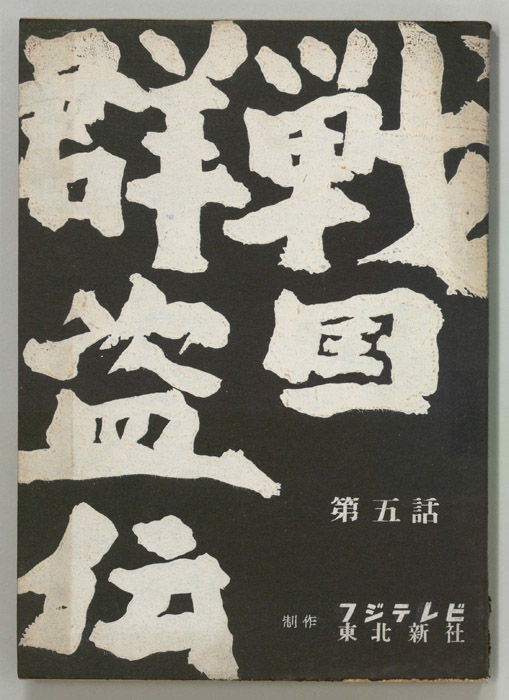 戦国
群盗伝
第五話
制作 フジテレビ
東北新社